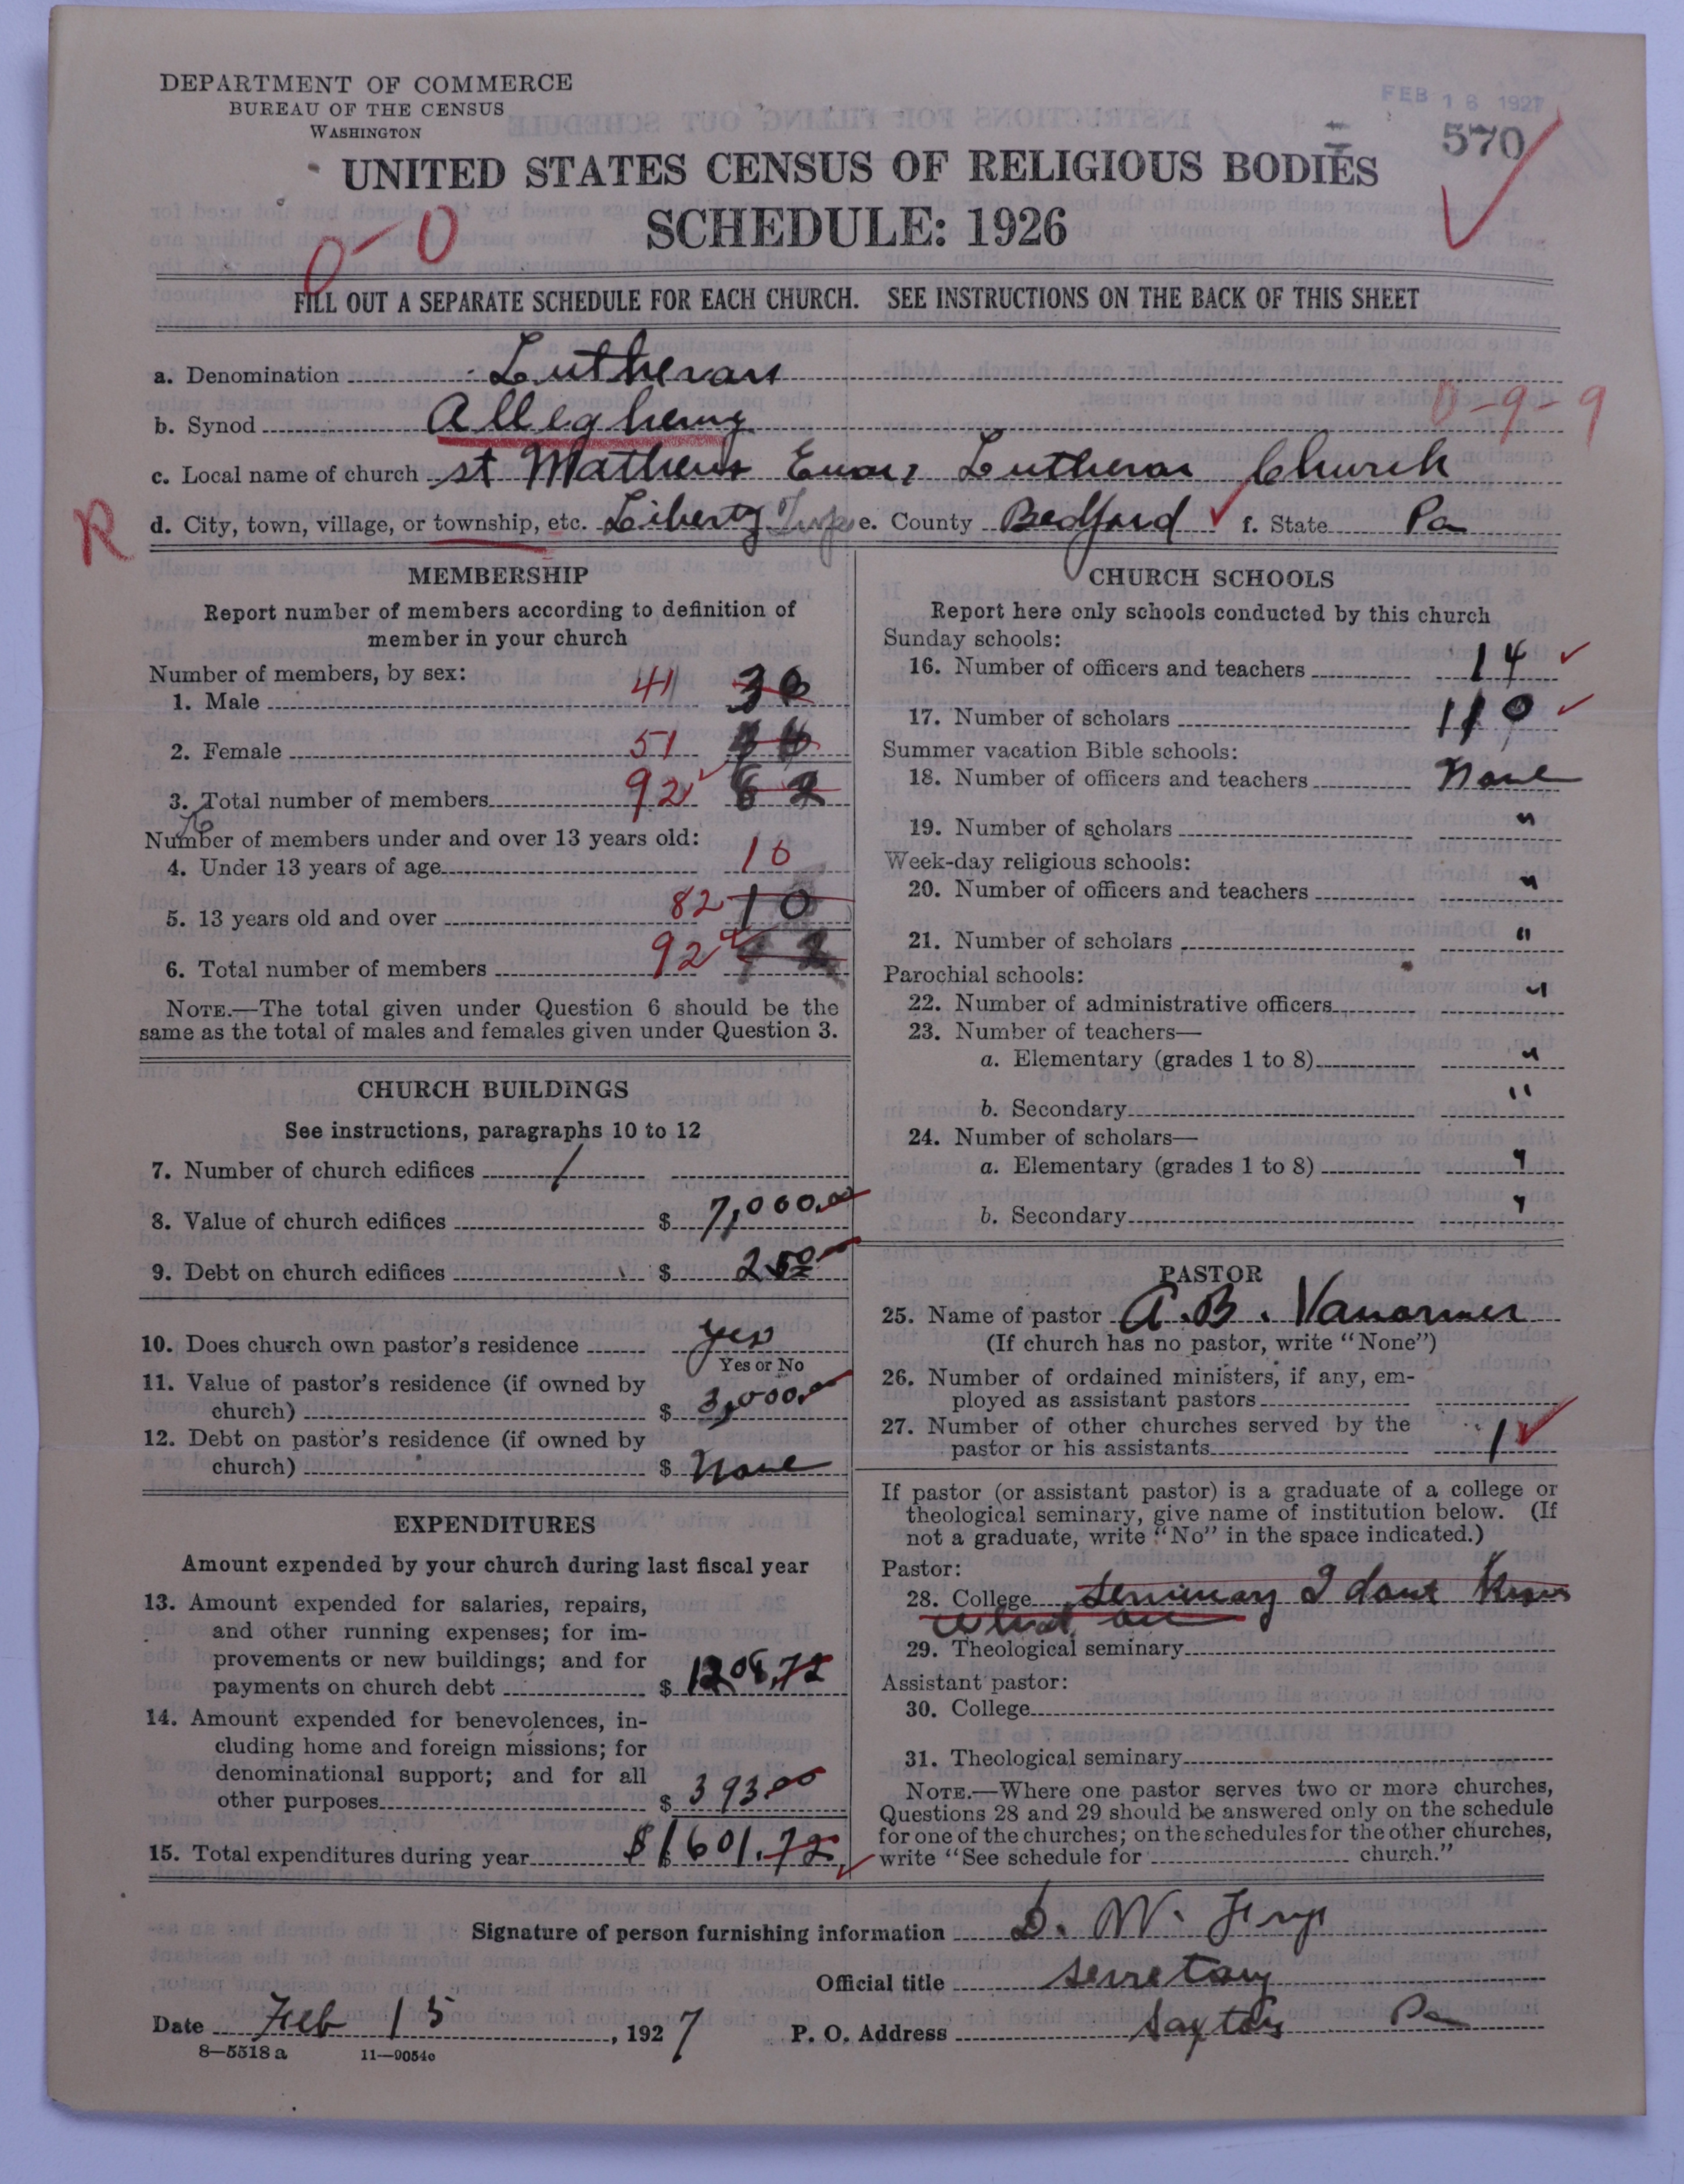 DEPARTMENT OF COMMERCE
BUREAU OF THE CENSUS
WASHINGTON
FEB 16 1927
570
UNITED STATES CENSUS OF RELIGIOUS BODIES
SCHEDULE: 1926
0-0
FILL OUT A SEPARATE SCHEDULE FOR EACH CHURCH. SEE INSTRUCTIONS ON THE BACK OF THIS SHEET
a. Denomination Lutheran
0-9-9
b. Synod Allegheny
c. Local name of church st Mathews Evan, Lutheran Church
R
d. City, town, village, or township, etc. Liberty Twp e. County Bedford f. State Pa
MEMBERSHIP
Report number of members according to definition of
member in your church
Number of members, by sex:
1. Male 41
2. Female 51
3. Total number of members 92
Number of members under and over 13 years old:
4. Under 13 years of age 10
5. 13 years old and over 82 10
6. Total number of members 92
NOTE.—The total given under Question 6 should be the
same as the total of males and females given under Question 3.
CHURCH BUILDINGS
See instructions, paragraphs 10 to 12
7. Number of church edifices 1
8. Value of church edifices $ 7,000.00
9. Debt on church edifices $
10. Does church own pastor's residence yes
Yes or No
11. Value of pastor's residence (if owned by
church) $ 3,000.00
12. Debt on pastor's residence (if owned by
church) $ None
EXPENDITURES
Amount expended by your church during last fiscal year
13. Amount expended for salaries, repairs,
and other running expenses; for im-
provements or new buildings; and for
payments on church debt $ 1208.72
14. Amount expended for benevolences, in-
cluding home and foreign missions; for
denominational support; and for all
other purposes $ 393.00
15. Total expenditures during year $1601.72
CHURCH SCHOOLS
Report here only schools conducted by this church
Sunday schools:
16. Number of officers and teachers 14
17. Number of scholars 110
Summer vacation Bible schools:
18. Number of officers and teachers None
19. Number of scholars "
Week-day religious schools:
20. Number of officers and teachers "
21. Number of scholars "
Parochial schools:
22. Number of administrative officers "
23. Number of teachers—
a. Elementary (grades 1 to 8) "
b. Secondary "
24. Number of scholars—
a. Elementary (grades 1 to 8) "
b. Secondary "
PASTOR
25. Name of pastor A. B. Vanormer
(If church has no pastor, write "None")
26. Number of ordained ministers, if any, em-
ployed as assistant pastors
27. Number of other churches served by the
pastor or his assistants 1
If pastor (or assistant pastor) is a graduate of a college or
theological seminary, give name of institution below. (If
not a graduate, write "No" in the space indicated.)
Pastor:
28. College seminary I dont Know
what one
29. Theological seminary
Assistant pastor:
30. College
31. Theological seminary
NOTE.—Where one pastor serves two or more churches,
Questions 28 and 29 should be answered only on the schedule
for one of the churches; on the schedules for the other churches,
write "See schedule for church."
Signature of person furnishing information D. W. Frye
Official title secretary
Date Feb 15, 1927 P. O. Address Saxton Pa
8—5518a 11—9054c